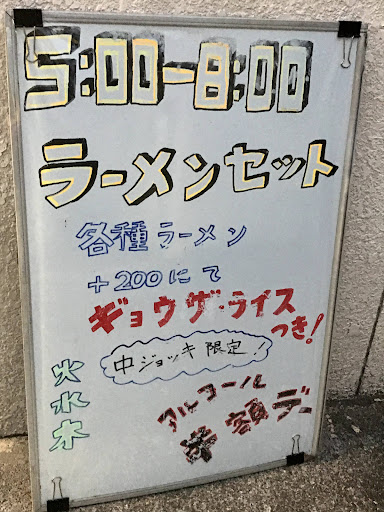 5:00-8:00
ラーメンセット
各種ラーメン
+200にて
ギョウザ・ライス
つき!
中ジョッキ限定!
火水木
アルコール
半額デー